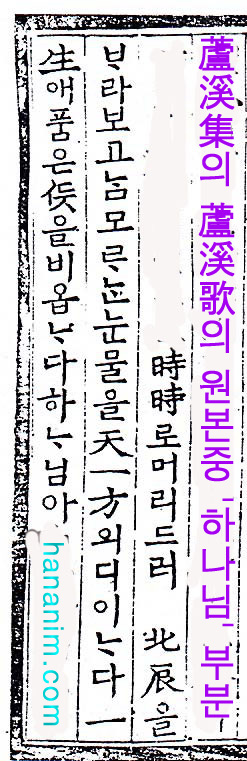 蘆溪集의 蘆溪歌의 원본중 '하나님' 부분
時時로머리드러 北辰을
ᄇᆞ라보고ᄂᆞᆷ모ᄅᆞᄂᆞᆫ눈물을天一方의디이ᄂᆞ다 一
生애품은ᄠᅳᆺ을비옵ᄂᆞ다하ᄂᆞ님아
hananim.com